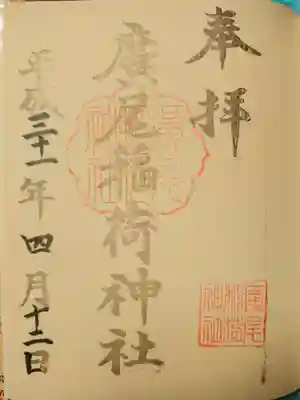 奉拝
廣尾稲荷神社
平成三十一年四月十二日